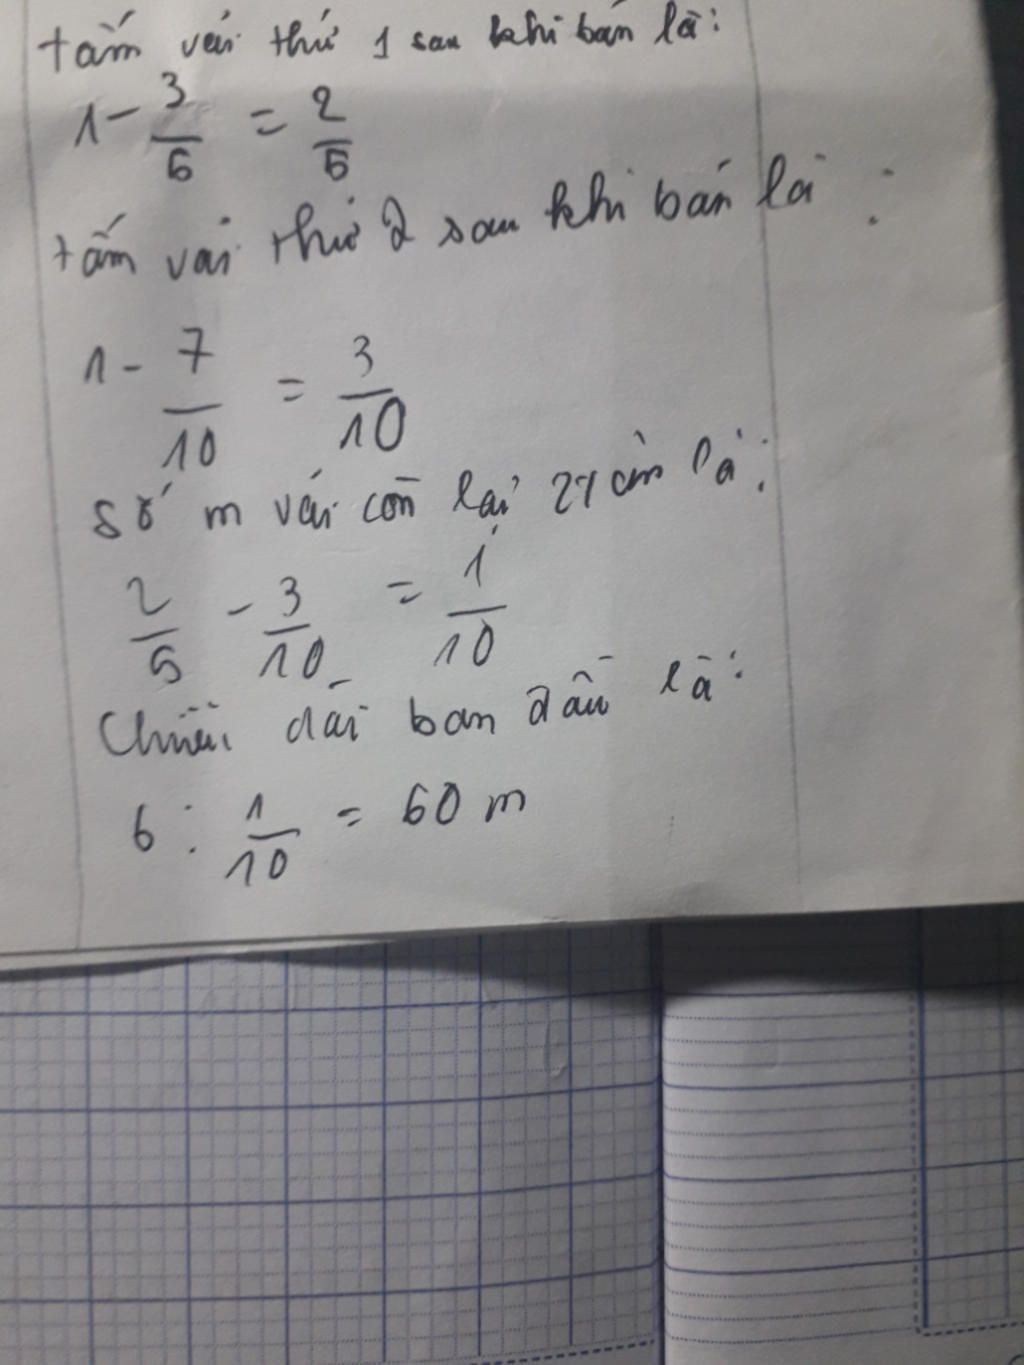 tấm vải thứ 1 sau khi bán là:
1 - 3/5 = 2/5
tấm vải thứ 2 sau khi bán là :
1 - 7/10 = 3/10
số m vải còn lại là:
2/5 - 3/10 = 1/10
Chiều dài ban đầu là:
6 : 1/10 = 60 m